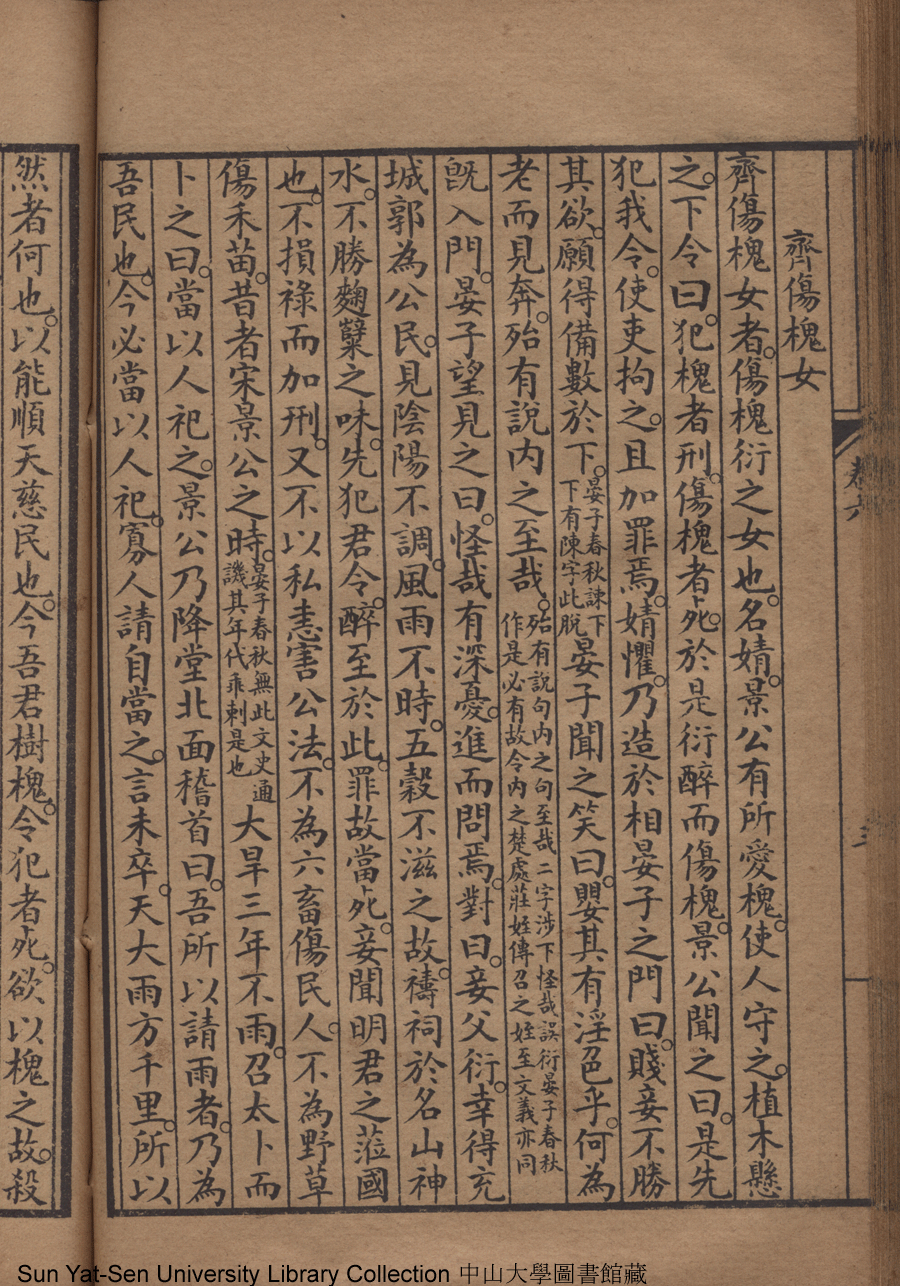 卷六
齊傷槐女
齊傷槐女者。傷槐衍之女也。名婧。景公有所愛槐。使人守之。植木懸
之。下令曰。犯槐者刑。傷槐者死。於是衍醉而傷槐。景公聞之曰。是先
犯我令。使吏拘之。且加罪焉。婧懼。乃造於相晏子之門曰。賤妾不勝
其欲。願得備數於下。晏子春秋諫下下有陳字此脫晏子聞之笑曰。嬰其有淫色乎。何為
老而見奔。殆有說內之至哉。殆有說句內之句至哉二字涉下怪哉誤衍晏子春秋作是必有故令內之楚處莊姪傳召之姪至文義亦同
既入門。晏子望見之曰。怪哉有深憂。進而問焉。對曰。妾父衍。幸得充
城郭為公民。見陰陽不調。風雨不時。五穀不滋之故。禱祠於名山神
水。不勝麴糵之味。先犯君令。醉至於此。罪故當死。妾聞明君之蒞國
也。不損祿而加刑。又不以私恚害公法。不為六畜傷民人。不為野草
傷禾苗。昔者宋景公之時。晏子春秋無此文史通譏其年代乖剌是也大旱三年不雨。召太卜而
卜之曰。當以人祀之。景公乃降堂北面稽首曰。吾所以請雨者。乃為
吾民也。今必當以人祀。寡人請自當之。言未卒。天大雨方千里。所以
然者何也。以能順天慈民也。今吾君樹槐。令犯者死。欲以槐之故。殺
Sun Yat-Sen University Library Collection 中山大學圖書館藏